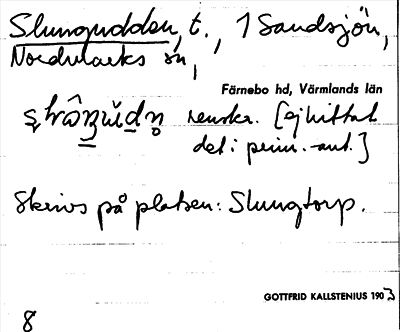 Slungudden, t., 1 Sandsjön,
Nordmarks sn,
Färnebo hd, Värmlands län
renskr. [ej hittat
det i prim.-ant.]
Skrivs på platsen: Slungtorp.
GOTTFRID KALLSTENIUS 1903
8